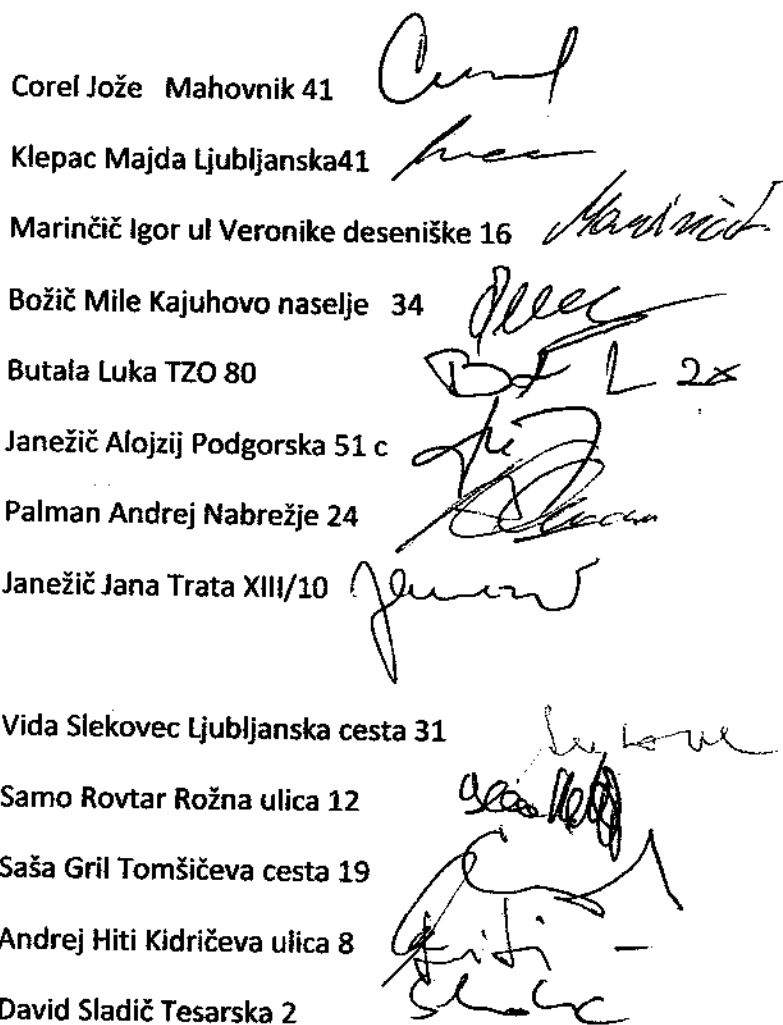 Corel Jože Mahovnik 41
Klepac Majda Ljubljanska41
Marinčič Igor ul Veronike deseniške 16 Marinčič
Božič Mile Kajuhovo naselje 34
Butala Luka TZO 80 L 2x
Janežič Alojzij Podgorska 51 c
Palman Andrej Nabrežje 24
Janežič Jana Trata XIII/10
Vida Slekovec Ljubljanska cesta 31
Samo Rovtar Rožna ulica 12
Saša Gril Tomšičeva cesta 19
Andrej Hiti Kidričeva ulica 8 Hiti
David Sladič Tesarska 2